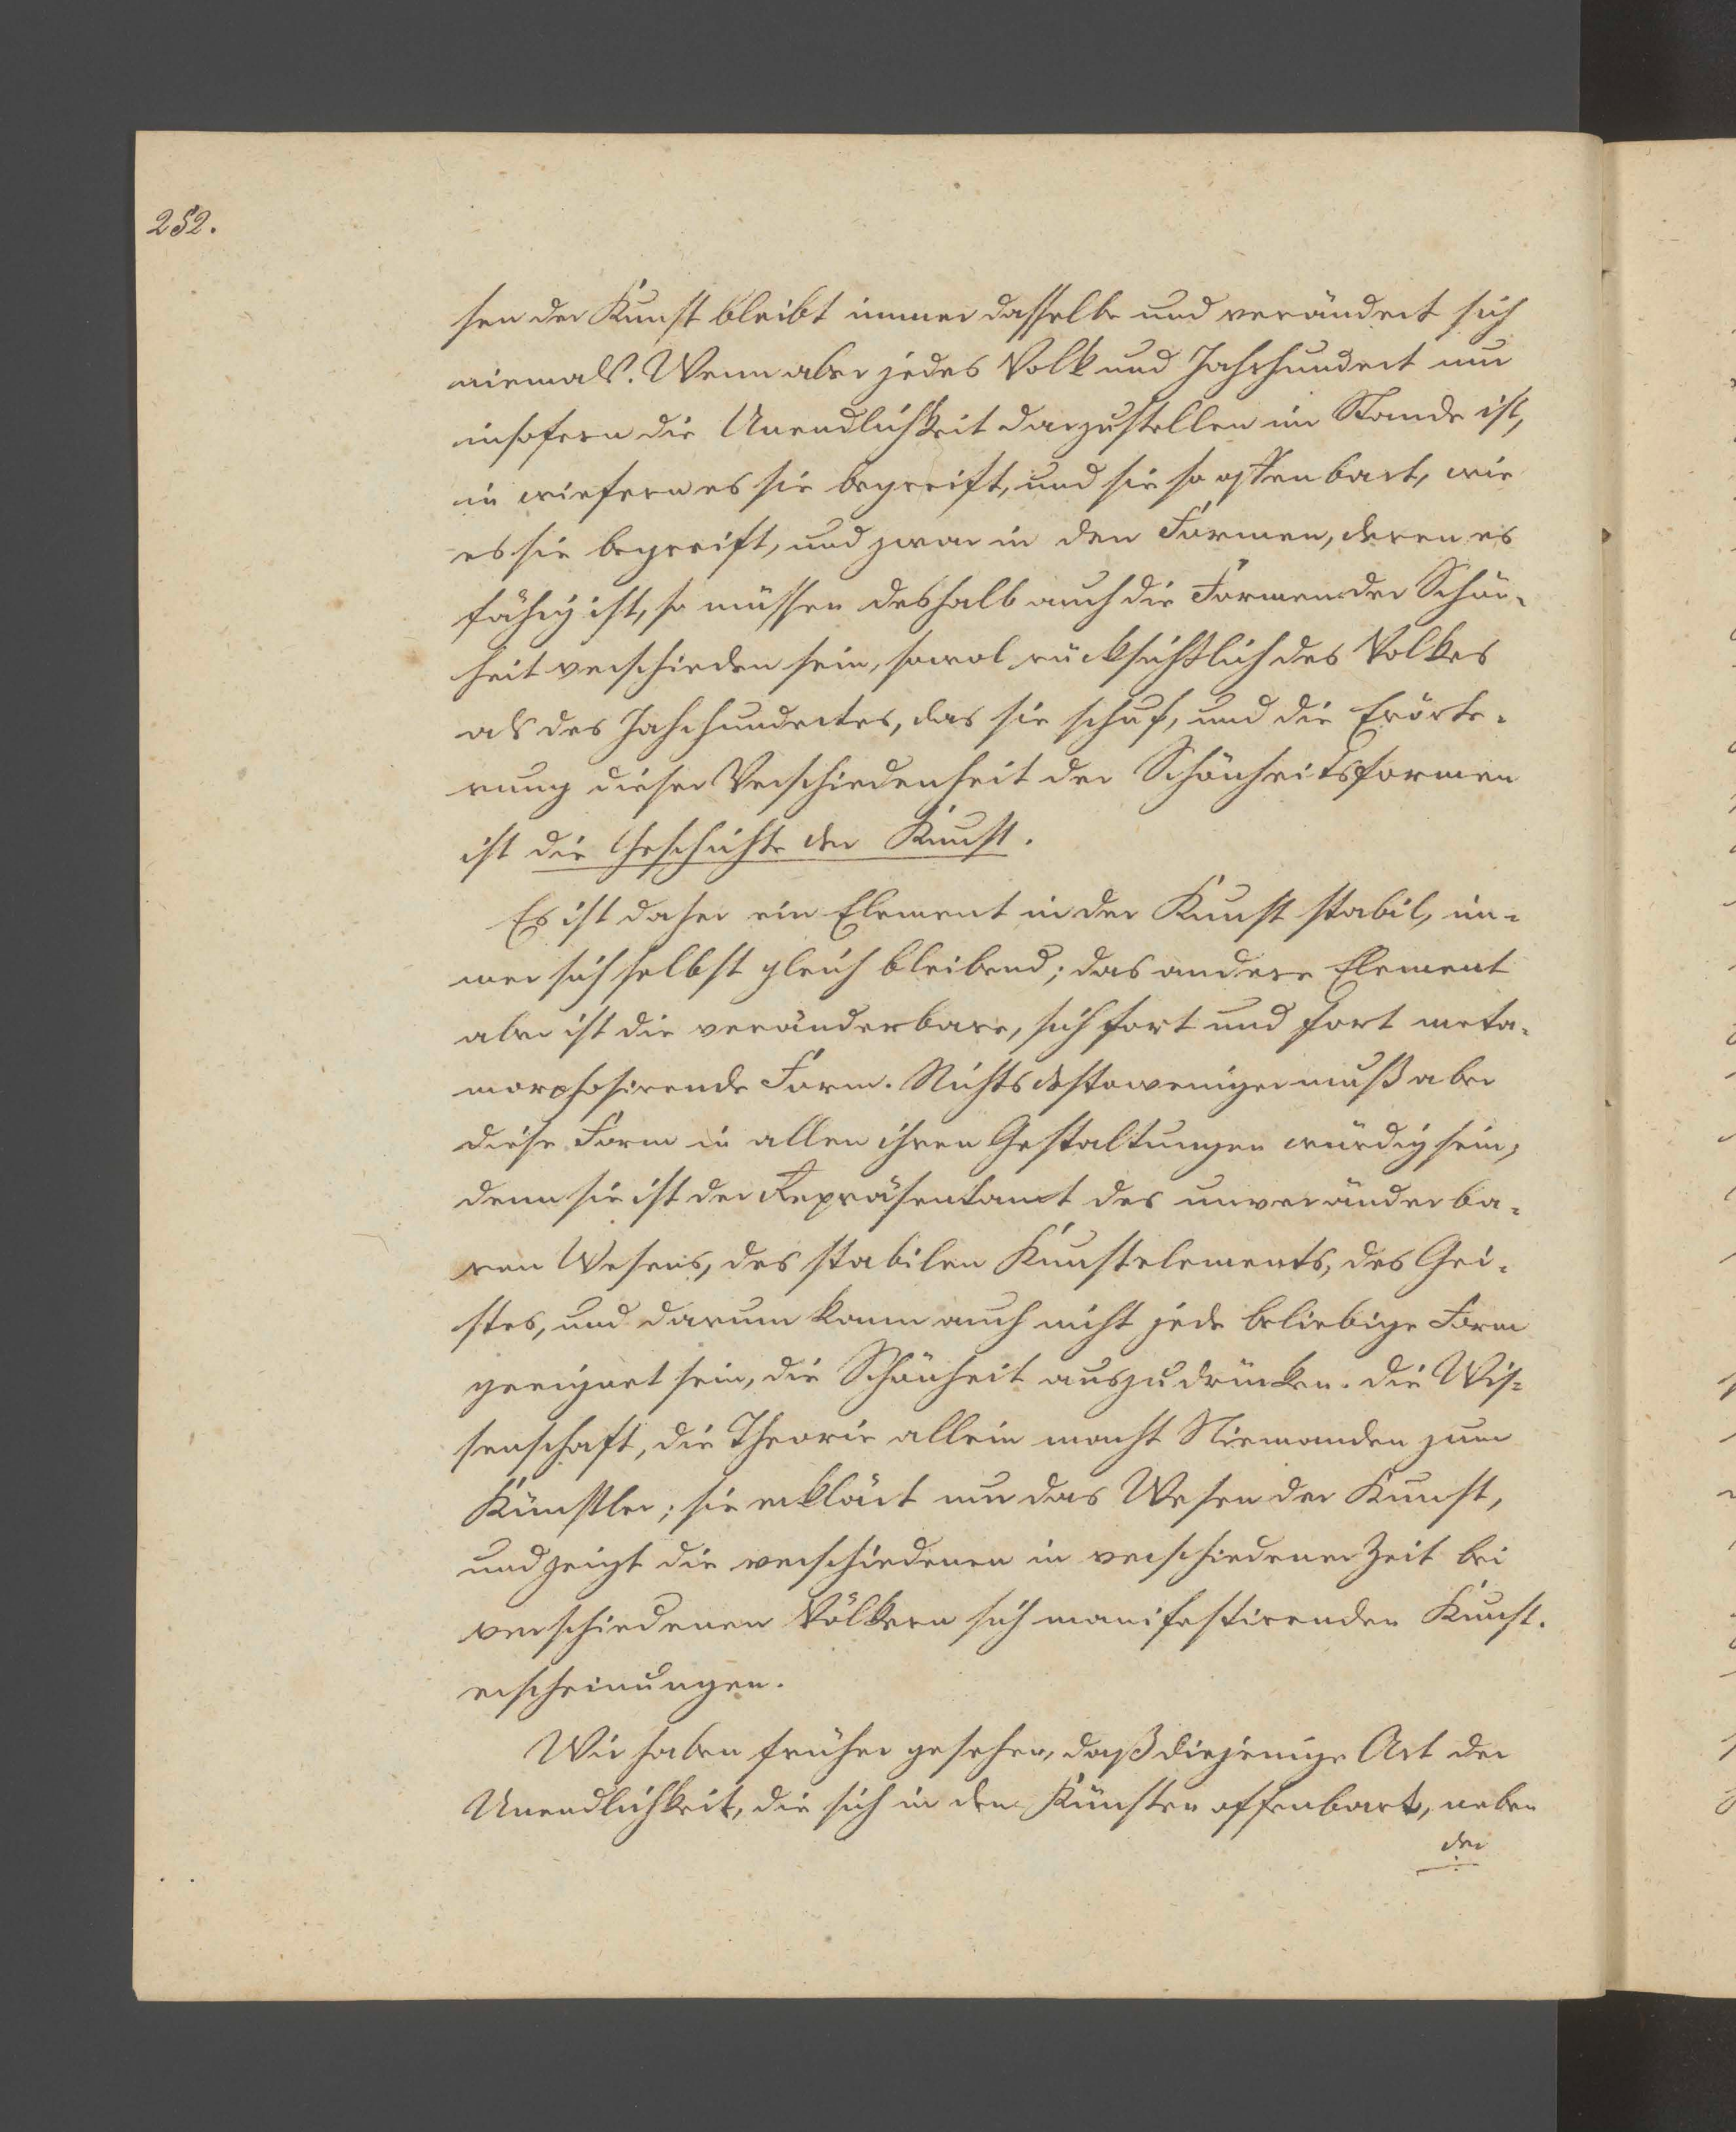 252.
sen der Kunst bleibt immer dasselbe und verändert sich
niemals. Wenn aber jedes Volk und Jahrhundert nur
insofern die Unendlichkeit darzustellen im Stande ist,
in wiefern es sie begreift, und sie so offenbart, wie
es sie begreift, und zwar in den Formen, deren es
fähig ist, so müssen deshalb auch die Formen der Schön-
heit verschieden sein, sowol rücksichtlich des Volkes
als des Jahrhundertes, das sie schuf, und die Erörte-
rung dieser Verschiedenheit der Schönheitsformen
ist die Geschichte der Kunst.
Es ist daher ein Element in der Kunst stabil, im-
mer sich selbst gleich bleibend; das andere Element
aber ist die veränderbare, sich fort und fort meta-
morphosirende Form. Nichtsdestoweniger muß aber
diese Form in allen ihren Gestaltungen würdig sein,
denn sie ist der Repräsentant des unveränderba-
ren Wesens, des stabilen Kunstelements, des Gei-
stes, und darum kann auch nicht jede beliebige Form
geeignet sein, die Schönheit auszudrücken. Die Wis-
senschaft, die Theorie allein macht Niemanden zum
Künstler; sie erklärt nur das Wesen der Kunst,
und zeigt die verschiedenen in verschiedener Zeit bei
verschiedenen Völkern sich manifestirenden Kunst-
erscheinungen.
Wir haben früher gesehen, daß diejenige Art der
Unendlichkeit, die sich in den Künsten offenbart, neben
der